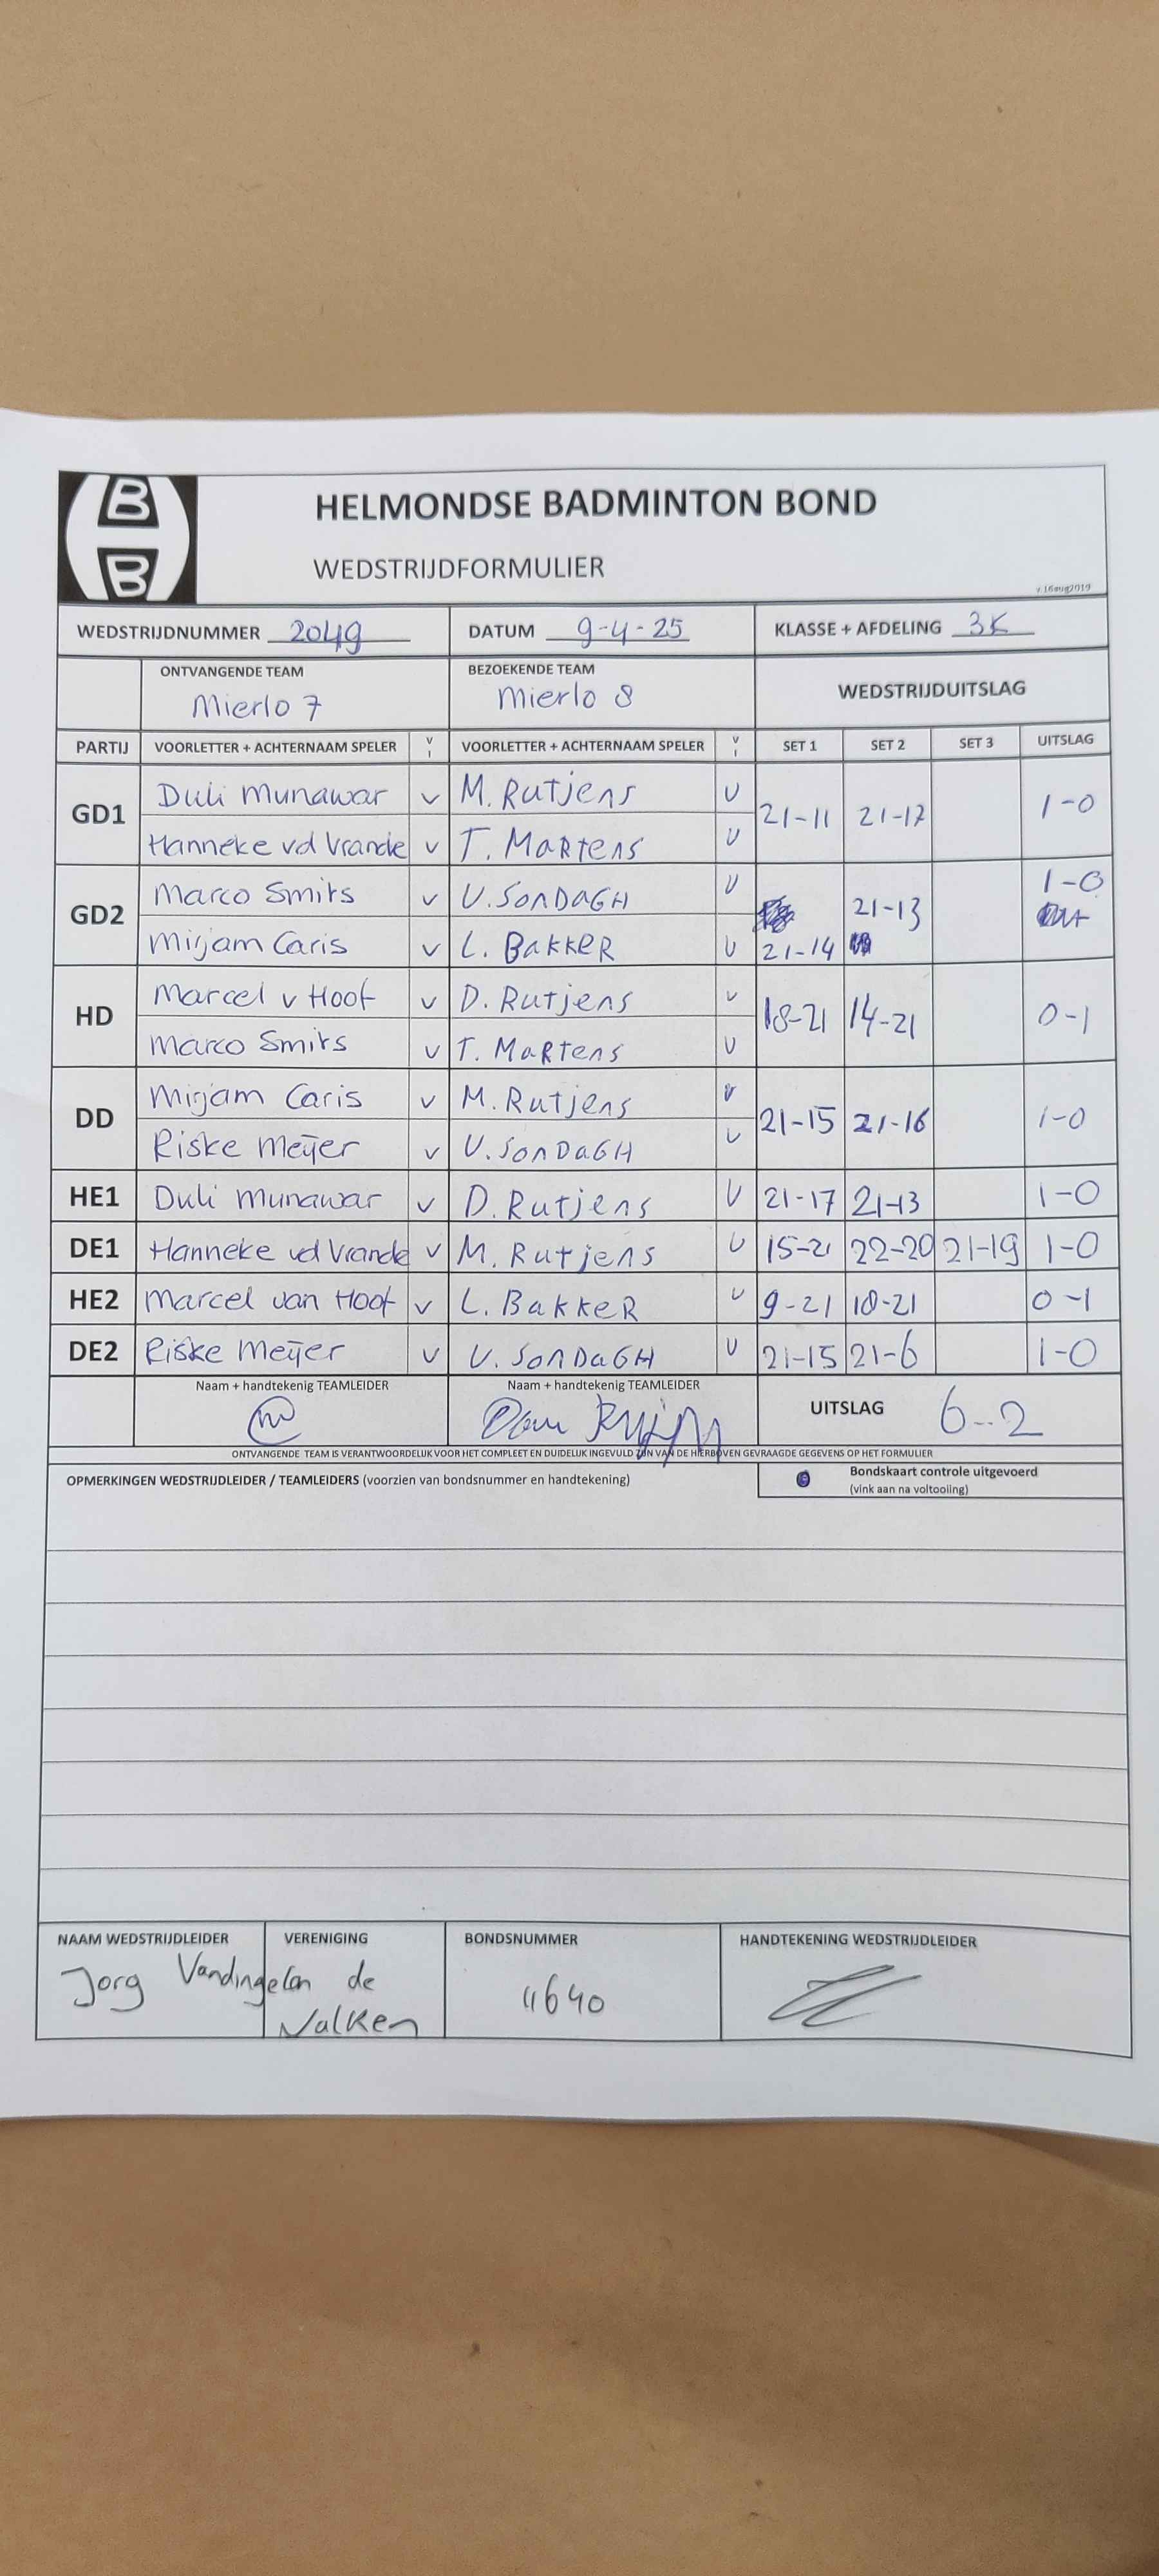 B
B
HELMONDSE BADMINTON BOND
WEDSTRIJDFORMULIER
v.16aug2019
WEDSTRIJDNUMMER 2049 DATUM 9-4-25 KLASSE + AFDELING 3K
ONTVANGENDE TEAM BEZOEKENDE TEAM WEDSTRIJDUITSLAG
Mierlo 7 Mierlo 8
PARTIJ VOORLETTER + ACHTERNAAM SPELER V I VOORLETTER + ACHTERNAAM SPELER V I SET 1 SET 2 SET 3 UITSLAG
GD1 Duli Munawar v M. Rutjens v 21-11 21-17 1-0
Hanneke vd Vrande v T. Martens v
GD2 Marco Smits v V. SonDaGH v 21-13 1-0
Mirjam Caris v L. Bakker v 21-14
HD Marcel v Hoof v D. Rutjens v 18-21 14-21 0-1
Marco Smits v T. Martens v
DD Mirjam Caris v M. Rutjens v 21-15 21-16 1-0
Riske Meijer v V. SonDaGH v
HE1 Duli Munawar v D. Rutjens v 21-17 21-13 1-0
DE1 Hanneke vd Vrande v M. Rutjens v 15-21 22-20 21-19 1-0
HE2 Marcel van Hoof v L. Bakker v 9-21 10-21 0-1
DE2 Riske Meijer v V. SonDaGH v 21-15 21-6 1-0
Naam + handtekenig TEAMLEIDER Naam + handtekenig TEAMLEIDER UITSLAG 6-2
ONTVANGENDE TEAM IS VERANTWOORDELIJK VOOR HET COMPLEET EN DUIDELIJK INGEVULD ZIJN VAN DE HIERBOVEN GEVRAAGDE GEGEVENS OP HET FORMULIER
OPMERKINGEN WEDSTRIJDLEIDER / TEAMLEIDERS (voorzien van bondsnummer en handtekening) Bondskaart controle uitgevoerd
(vink aan na voltooiing)
NAAM WEDSTRIJDLEIDER VERENIGING BONDSNUMMER HANDTEKENING WEDSTRIJDLEIDER
Jorg de 4640
Valken